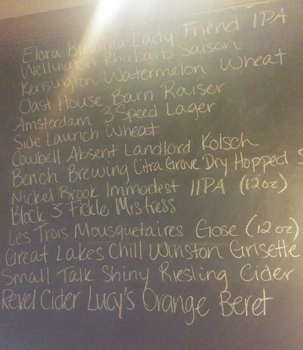 Elora Brewing Lady Friend IPA
Wellington Rhubarb Saison
Kensington Watermelon Wheat
Oast House Barn Raiser
Amsterdam 3 Speed Lager
Side Launch Wheat
Cowbell Absent Landlord Kolsch
Bench Brewing Citra Grove Dry Hopped S
Nickel Brook Immodest IIPA (12oz)
Block 3 Fickle Mistress
Les Trois Mousquetaires Gose (12oz)
Great Lakes Chill Winston Grisette
Small Talk Shiny Riesling Cider
Revel Cider Lucy's Orange Beret